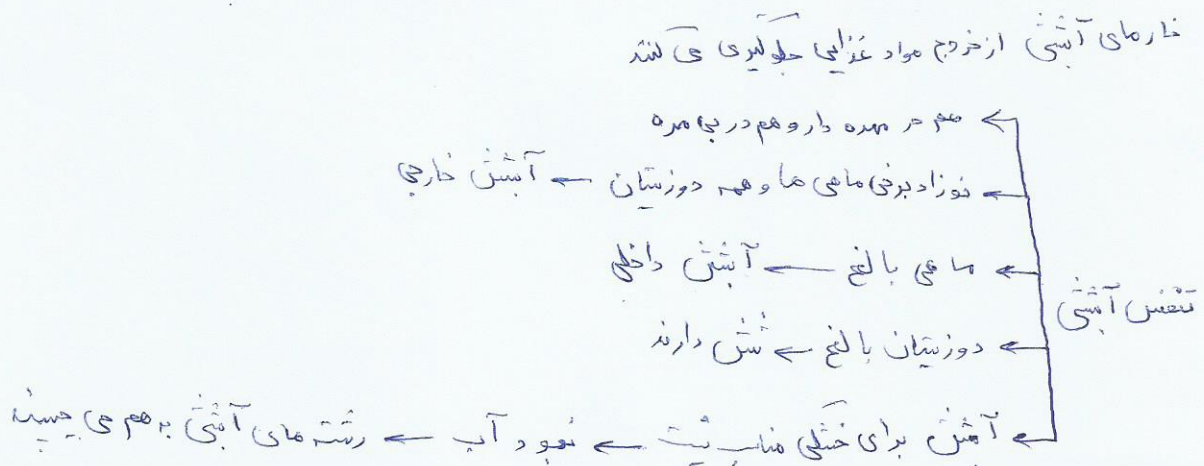 خارهای آبششی از خروج مواد غذایی جلوگیری می کنند
هم در مهره دار و هم در بی مهره
نوزاد برخی ماهی ها و همه دوزیستان ← آبشش خارجی
ماهی بالغ ← آبشش داخلی
تنفس آبششی
دوزیستان بالغ ← شش دارند
آبشش برای خشکی مناسب نیست ← نبود آب ← رشته های آبششی به هم می چسبند